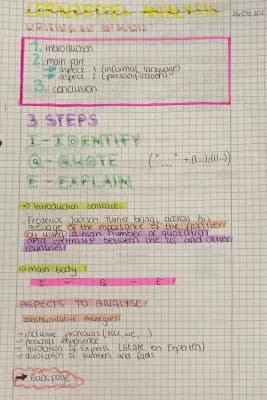 LANGUAGE ANALYSIS
WRITING AN ANALYSIS
1. introduction
2. main part
→ aspect 1 (informal language)
→ aspect 2 (personification)
3. conclusion
3 STEPS
I - IDENTIFY
Q - QUOTE ("..." + (l...);(ll...))
E - EXPLAIN
→ Introduction sentence:
Frederick Jackson Turner brings across his
message of the importance of the frontier
by using a high number of quotation
and contrasts between the US and other
countries
→ main body
I - Q - E
ASPECTS TO ANALYSE
communicative strategies
→ inclusive pronouns (you, we, ...)
→ personal experience
→ quotation of experts (state an Experten)
→ quotation of numbers and facts
→ Back page